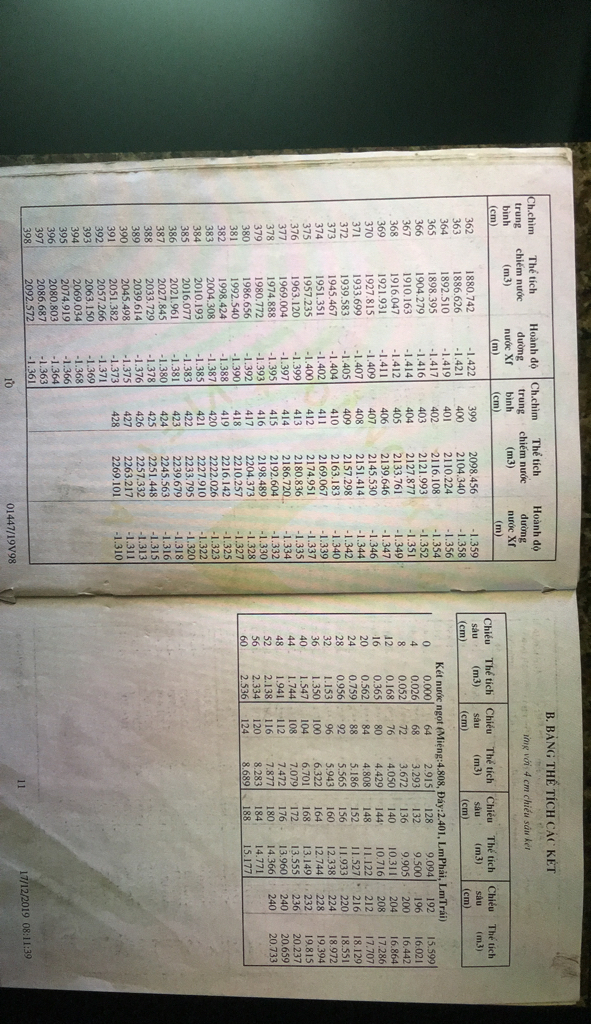 Ch.chìm Thể tích Hoành độ Ch.chìm Thể tích Hoành độ
trung chiếm nước đường trung chiếm nước đường
bình (m3) nước Xf bình (m3) nước Xf
(cm) (m) (cm) (m)
362 1880.742 -1.422 399 2098.456 -1.359
363 1886.626 -1.421 400 2104.340 -1.358
364 1892.510 -1.419 401 2110.224 -1.356
365 1898.395 -1.417 402 2116.108 -1.354
366 1904.279 -1.416 403 2121.993 -1.352
367 1910.163 -1.414 404 2127.877 -1.351
368 1916.047 -1.412 405 2133.761 -1.349
369 1921.931 -1.411 406 2139.646 -1.347
370 1927.815 -1.409 407 2145.530 -1.346
371 1933.699 -1.407 408 2151.414 -1.344
372 1939.583 -1.405 409 2157.298 -1.342
373 1945.467 -1.404 410 2163.183 -1.340
374 1951.351 -1.402 411 2169.067 -1.339
375 1957.235 -1.400 412 2174.951 -1.337
376 1963.120 -1.399 413 2180.836 -1.335
377 1969.004 -1.397 414 2186.720 -1.334
378 1974.888 -1.395 415 2192.604 -1.332
379 1980.772 -1.393 416 2198.489 -1.330
380 1986.656 -1.392 417 2204.373 -1.328
381 1992.540 -1.390 418 2210.257 -1.327
382 1998.424 -1.388 419 2216.142 -1.325
383 2004.308 -1.387 420 2222.026 -1.323
384 2010.193 -1.385 421 2227.910 -1.322
385 2016.077 -1.383 422 2233.795 -1.320
386 2021.961 -1.381 423 2239.679 -1.318
387 2027.845 -1.380 424 2245.563 -1.316
388 2033.729 -1.378 425 2251.448 -1.315
389 2039.614 -1.376 426 2257.332 -1.313
390 2045.498 -1.375 427 2263.217 -1.311
391 2051.382 -1.373 428 2269.101 -1.310
392 2057.266 -1.371
393 2063.150 -1.369
394 2069.034 -1.368
395 2074.919 -1.366
396 2080.803 -1.364
397 2086.687 -1.363
398 2092.572 -1.361
10 01447/19V98
B. BẢNG THỂ TÍCH CÁC KÉT
ứng với 4 cm chiều sâu két
Chiều Thể tích Chiều Thể tích Chiều Thể tích Chiều Thể tích
sâu (m3) sâu (m3) sâu (m3) sâu (m3)
(cm) (cm) (cm) (cm)
Két nước ngọt (Miệng:4.808, Đáy:2.401, LmPhải, LmTrái)
0 0.000 64 2.915 128 9.094 192 15.599
4 0.026 68 3.293 132 9.500 196 16.021
8 0.052 72 3.672 136 9.905 200 16.442
12 0.168 76 4.050 140 10.311 204 16.864
16 0.365 80 4.429 144 10.716 208 17.286
20 0.562 84 4.808 148 11.122 212 17.707
24 0.759 88 5.186 152 11.527 216 18.129
28 0.956 92 5.565 156 11.933 220 18.551
32 1.153 96 5.943 160 12.338 224 18.972
36 1.350 100 6.322 164 12.744 228 19.394
40 1.547 104 6.701 168 13.149 232 19.815
44 1.744 108 7.079 172 13.555 236 20.237
48 1.941 112 7.471 176 13.960 240 20.659
52 2.138 116 7.877 180 14.366 240 20.733
56 2.334 120 8.283 184 14.771
60 2.536 124 8.689 188 15.177
11 17/12/2019 08:11:39